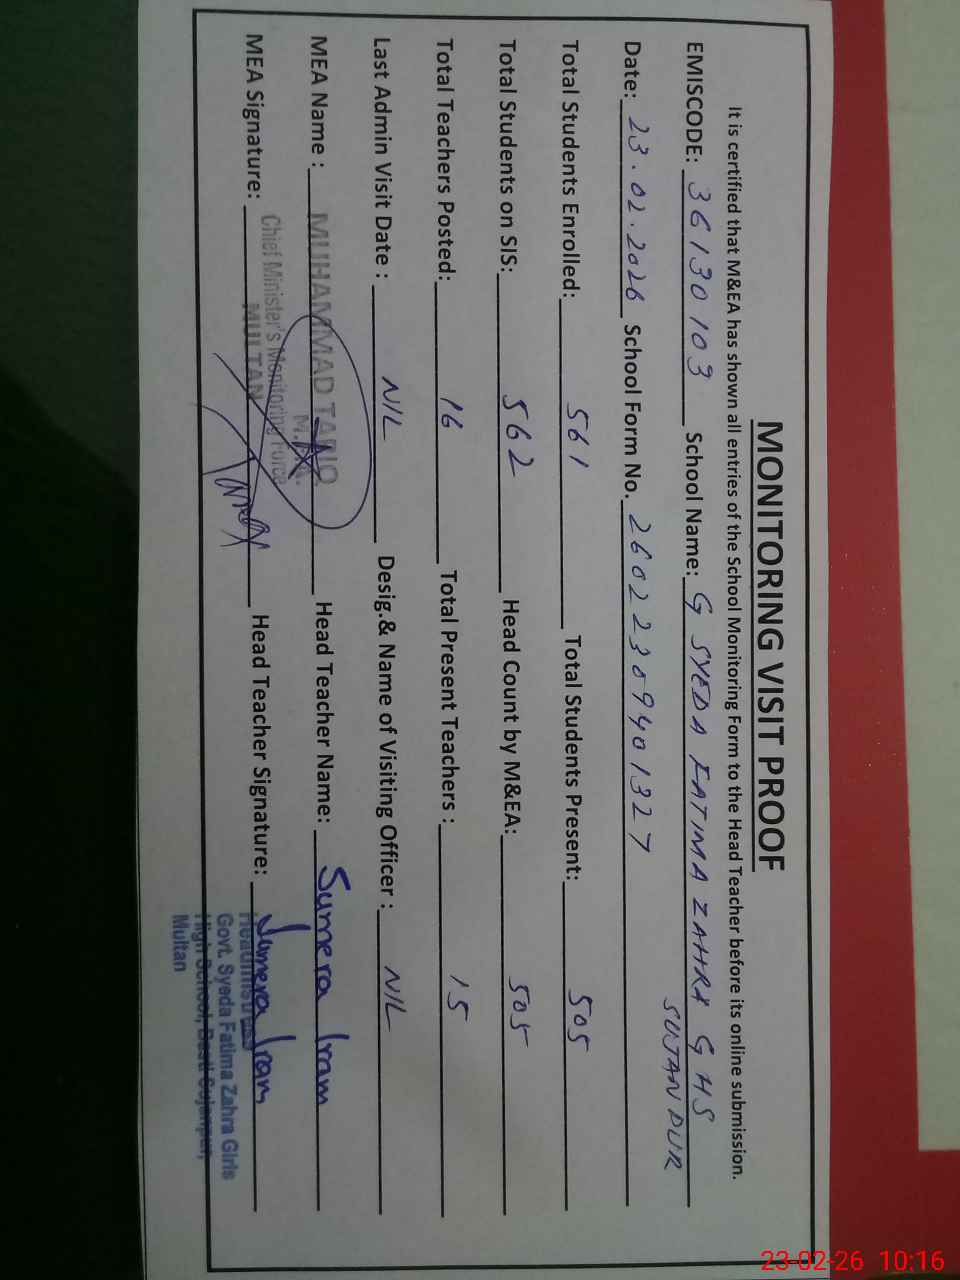 MONITORING VISIT PROOF
It is certified that M&EA has shown all entries of the School Monitoring Form to the Head Teacher before its online submission.
EMISCODE: 36130103 School Name: G SYEDA FATIMA ZAHRA GHS
SUJANPUR
Date: 23.02.2026 School Form No. 26022309401327
Total Students Enrolled: 561 Total Students Present: 505
Total Students on SIS: 562 Head Count by M&EA: 505
Total Teachers Posted: 16 Total Present Teachers : 15
Last Admin Visit Date : NIL Desig.& Name of Visiting Officer : NIL
MEA Name : MUHAMMAD TARIQ Head Teacher Name: Sumera Iram
M.E.A.
Chief Minister's Monitoring Force
MULTAN
MEA Signature: Head Teacher Signature: Sumera Iram
Headmistress
Govt. Syeda Fatima Zahra Girls
High School, Basti Sujanpur,
Multan
23-02-26 10:16